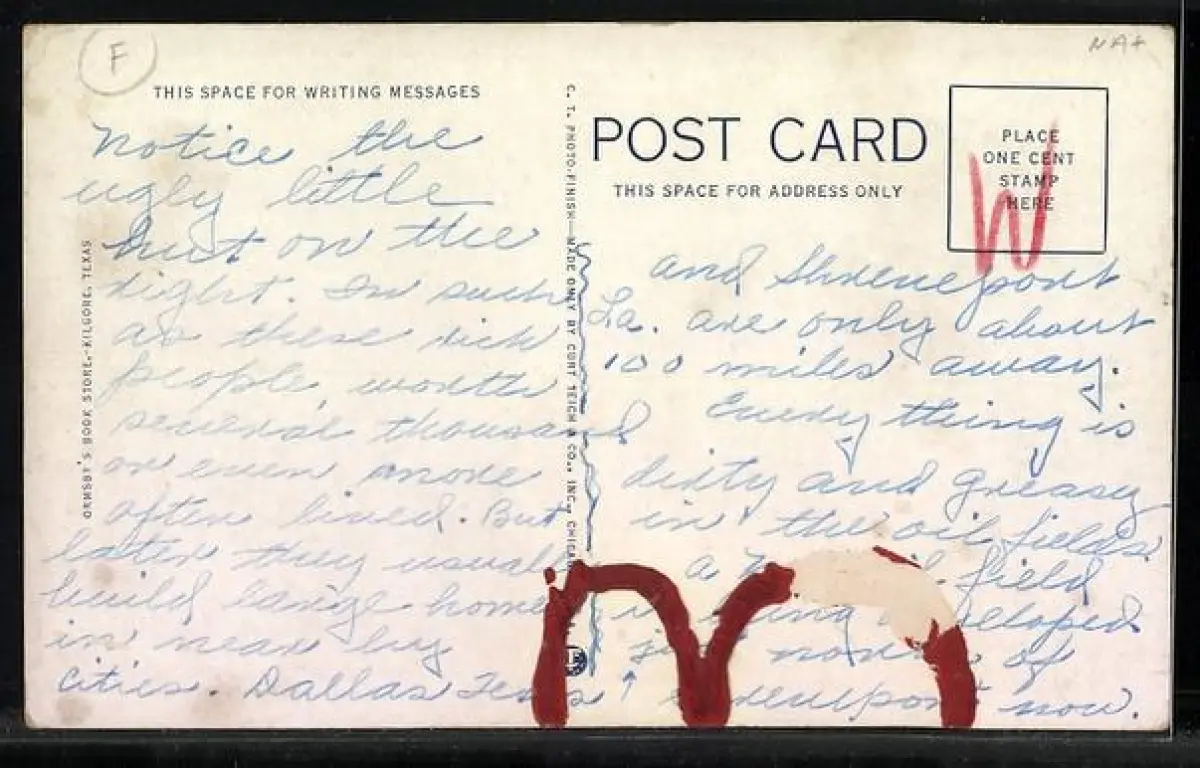 F
NA+
THIS SPACE FOR WRITING MESSAGES
Notice the
ugly little
hut on the
right. In such
as these rich
people, worth
several thousand
or even more
often lived. But
later they usually
build large homes
in near by
cities. Dallas Texas
ORMSBY'S BOOK STORE,-KILGORE, TEXAS
C. T. PHOTO-FINISH—MADE ONLY BY CURT TEICH & CO., INC., CHICAGO
POST CARD
THIS SPACE FOR ADDRESS ONLY
PLACE
ONE CENT
STAMP
HERE
W
and Shreveport
La. are only about
100 miles away.
Every thing is
dirty and greasy
in the oil fields
a field
is being
north of
Shreveport now.